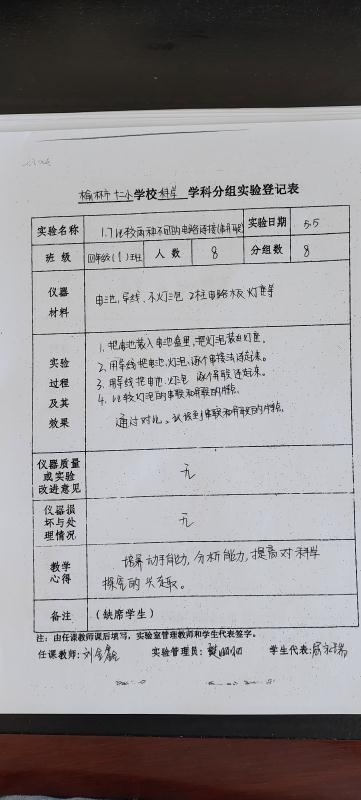 榆林市十二小学校科学 学科分组实验登记表
实验名称 1.7比较两种不同的电路连接(串并联) 实验日期 5.5
班 级 四年级(1)班 人 数 8 分组数 8
仪器材料 电池、导线、小灯泡 电路板 灯座等
实验过程及其效果
1. 把电池装入电池盒里,把灯泡装在灯座。
2. 用导线把电池、灯泡逐个串接法连起来。
3. 用导线把电池、灯泡 逐个并联连起来。
4. 比较灯泡的串联和并联的特点。
通过对比、认识到串联和并联的特点。
仪器质量或实验改进意见 无
仪器损坏与处理情况 无
教学心得 培养动手能力,分析能力,提高对科学
探究的兴趣。
备注 (缺席学生)
注:由任课教师课后填写,实验室管理教师和学生代表签字。
任课教师: 刘 实验管理员: 学生代表: